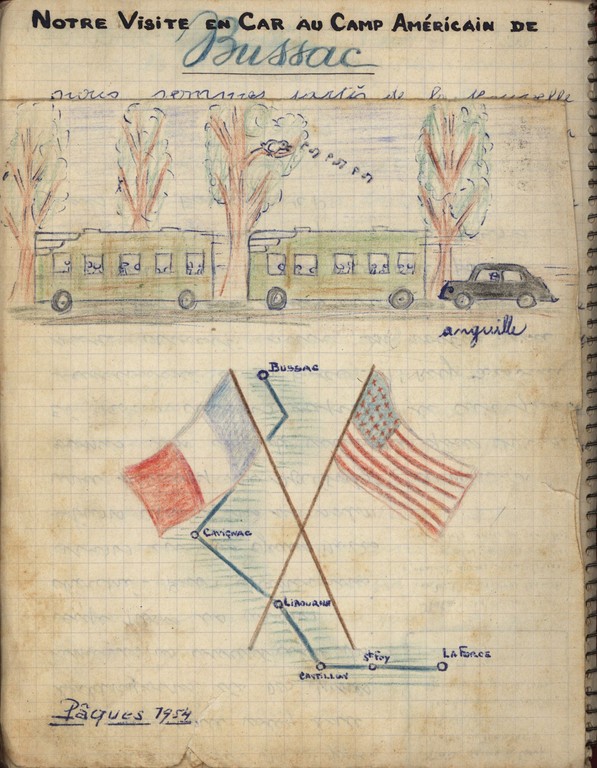 NOTRE VISITE EN CAR AU CAMP AMÉRICAIN DE
Bussac
nous sommes partis de la
anguille
BUSSAC
CAVIGNAC
LIBOURNE
CASTILLON
St FOY
LA FORCE
Pâques 1954